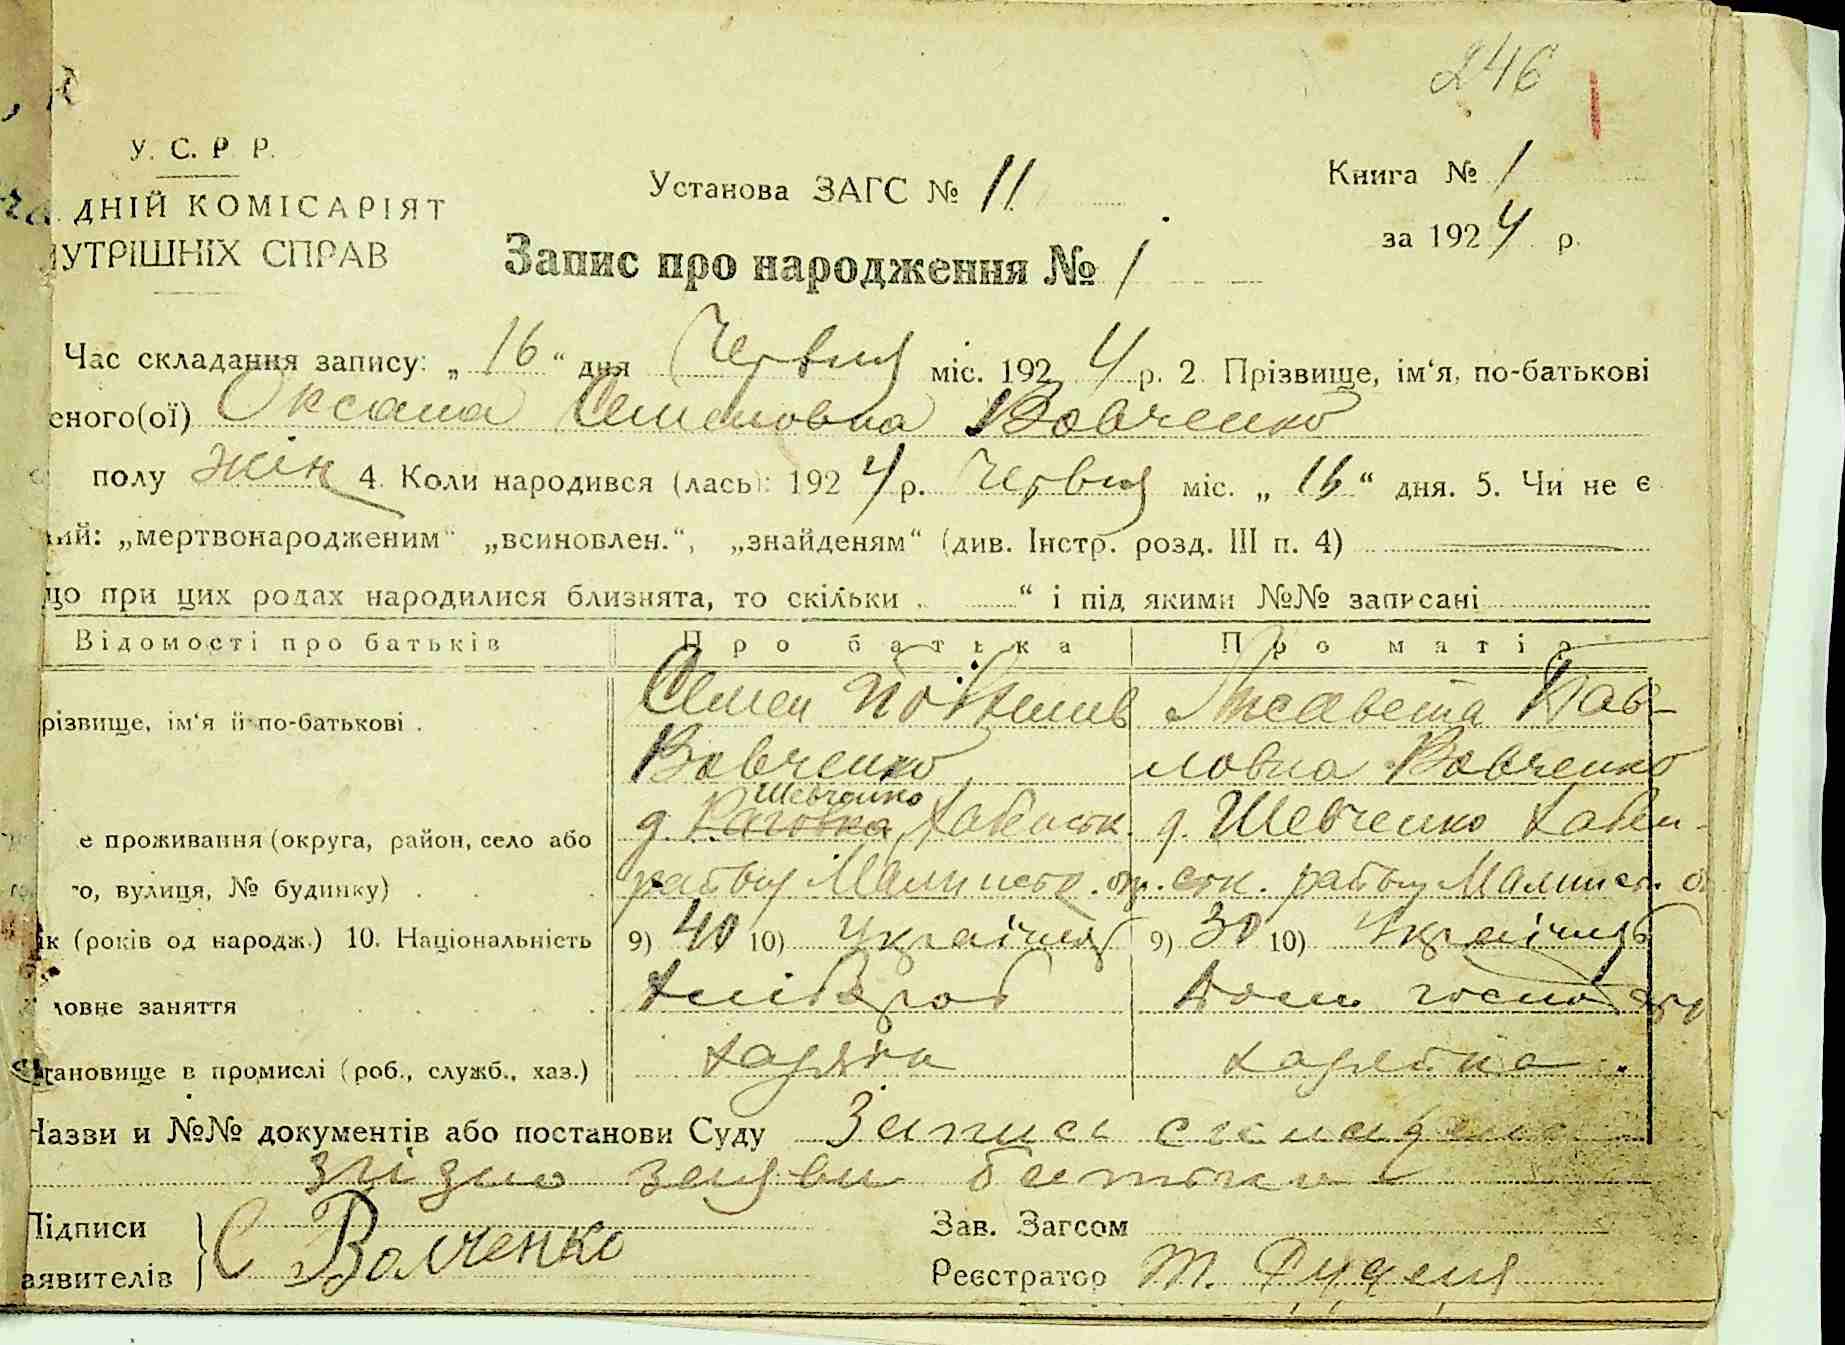 246
У. С. Р Р.
ДНІЙ КОМІСАРІЯТ
УТРІШНІХ СПРАВ
Установа ЗАГС № 11
Книга № 1
за 1924 р.
Запис про народження № 1
Час складання запису: „16“ дня Червня міс. 1924 р. 2. Прізвище, ім‘я, по-батькові
еного(ої) Оксана Семеновна Вовченко
полу жін 4. Коли народився (лась): 1924 р. Червня міс. „16“ дня. 5. Чи не є
ий: „мертвонародженим“ „всиновлен.“, „знайденям“ (див. Інстр. розд. III п. 4)
що при цих родах народилися близнята, то скільки „ “ і під якими №№ записані
Відомості про батьків Про батька Про матір
різвище, ім‘я й по-батькові . Семен Вовченко Лисавета Пав-
ловна Вовченко
е проживання (округа, район, село або д. Шевченко д. Шевченко
го, вулиця, № будинку) району Малинськ. ок. району Малинськ.
ік (років од народж.) 10. Національність 9) 40 10) Українець 9) 30 10) Українка
ловне заняття Хлібороб Дом. господарка
тановище в промислі (роб., служб., хаз.) хазяїн хазяйка.
Назви и №№ документів або постанови Суду Запись складено
згідно заяви батька
Підписи
аявителів С Волченко
Зав. Загсом
Реєстратор